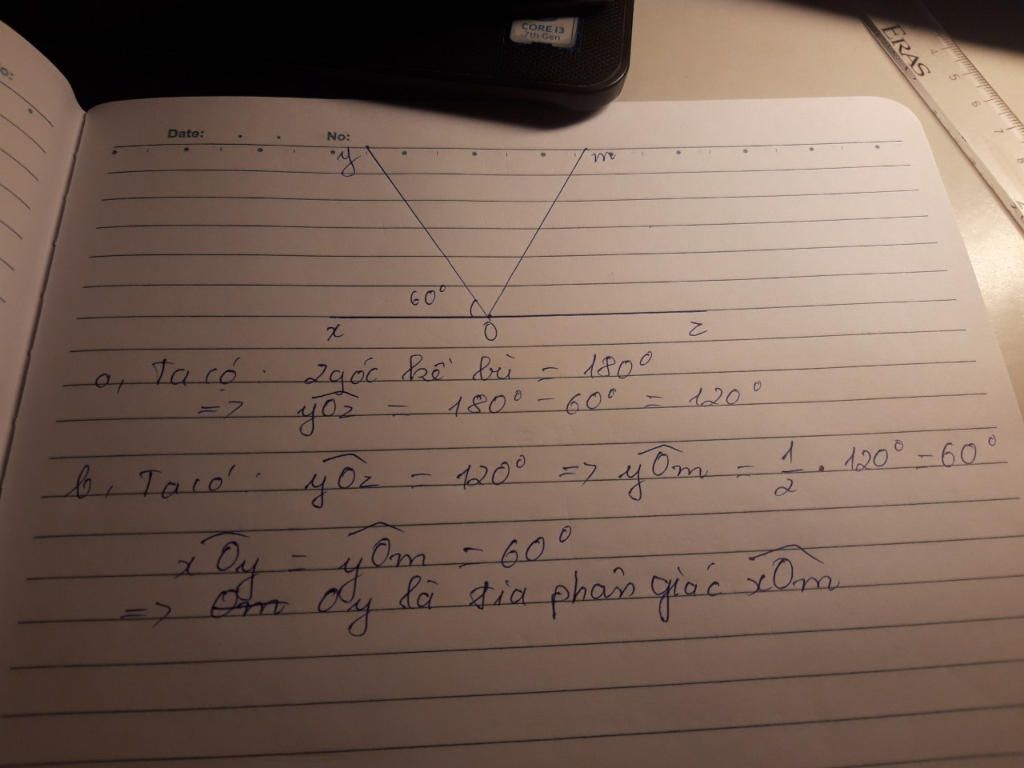 CORE i3
7th Gen
ERAS
5
6
7
Date:
No:
y
m
60°
x
O
z
a, Ta có : 2 góc kề bù = 180°
=> yOz = 180° - 60° = 120°
b, Ta có : yOz = 120° => yOm = 1/2 . 120° = 60°
xOy = yOm = 60°
=> Om Oy là tia phân giác xOm